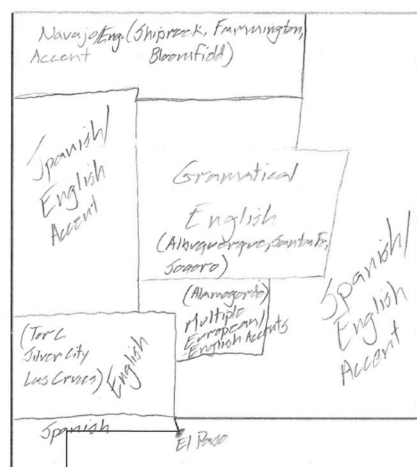 Navajo/Eng. (Shiprock, Farmington,
Accent Bloomfield)
Spanish/
English
Accent
Gramatical
English
(Albuquerque, Santa Fe,
Socoro)
(Alamogordo)
Multiple
European/
English Accents
Spanish/
English
Accent
(TorC
Silver City
Las Cruces)
English
Spanish
El Paso